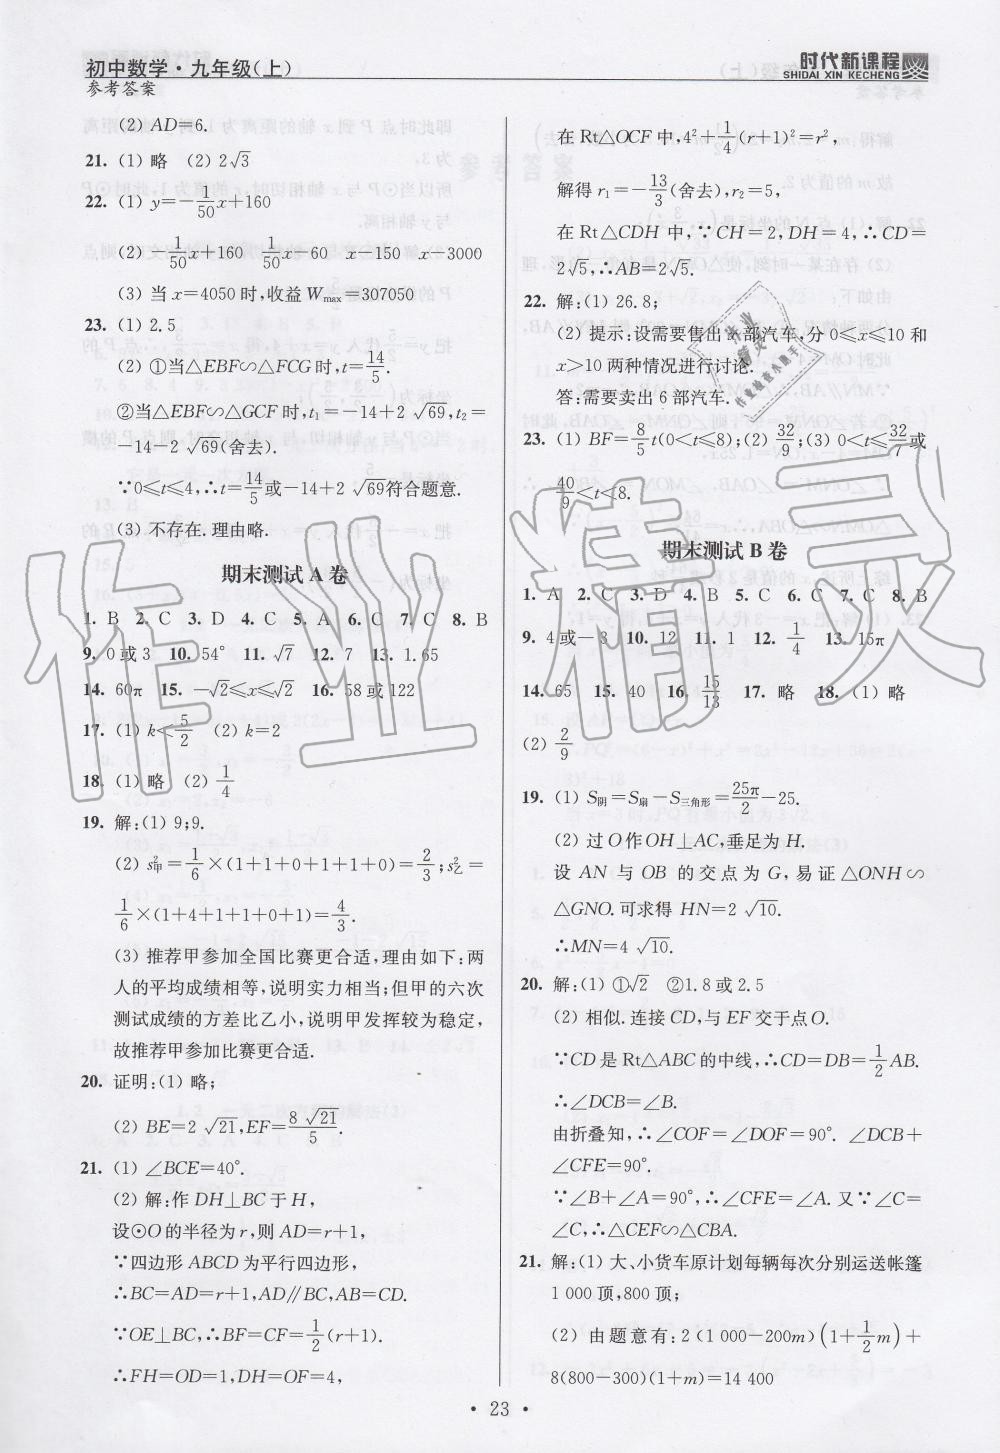 初中数学·九年级(上)
参考答案
时代新课程
SHIDAI XIN KECHENG
(2) AD=6.
21. (1) 略 (2) 2√3
22. (1) y=-1/50x+160
(2) -1/50x+160 1/50x-60 x-150 x-3000
(3) 当 x=4050 时,收益 Wmax=307050
23. (1) 2.5
(2) ①当△EBF∽△FCG 时,t=14/5.
②当△EBF∽△GCF 时,t₁=-14+2√69,t₂=
-14-2√69(舍去).
∵0≤t≤4,∴t=14/5或-14+2√69符合题意.
(3) 不存在.理由略.
期末测试 A 卷
1. B 2. C 3. D 4. C 5. A 6. C 7. C 8. B
9. 0 或 3 10. 54° 11. √7 12. 7 13. 1.65
14. 60π 15. -√2≤x≤√2 16. 58 或 122
17. (1) k<5/2 (2) k=2
18. (1) 略 (2) 1/4
19. 解:(1) 9;9.
(2) s²甲=1/6×(1+1+0+1+1+0)=2/3;s²乙=
1/6×(1+4+1+1+0+1)=4/3.
(3) 推荐甲参加全国比赛更合适,理由如下:两
人的平均成绩相等,说明实力相当;但甲的六次
测试成绩的方差比乙小,说明甲发挥较为稳定,
故推荐甲参加比赛更合适.
20. 证明:(1) 略;
(2) BE=2√21,EF=8√21/5.
21. (1) ∠BCE=40°.
(2) 解:作 DH⊥BC 于 H,
设⊙O 的半径为 r,则 AD=r+1,
∵四边形 ABCD 为平行四边形,
∴BC=AD=r+1,AD∥BC,AB=CD.
∵OE⊥BC,∴BF=CF=1/2(r+1).
∴FH=OD=1,DH=OF=4,
在 Rt△OCF 中,4²+1/4(r+1)²=r²,
解得 r₁=-13/3(舍去),r₂=5,
在 Rt△CDH 中,∵CH=2,DH=4,∴CD=
2√5,∴AB=2√5.
22. 解:(1) 26.8;
(2) 提示:设需要售出 x 部汽车,分 0≤x≤10 和
x>10 两种情况进行讨论.
答:需要卖出 6 部汽车.
23. (1) BF=8/5t(0<t≤8);(2) 32/9;(3) 0<t≤32/7或
40/9<t<8.
期末测试 B 卷
1. A 2. C 3. D 4. B 5. C 6. C 7. C 8. B
9. 4 或-3 10. 12 11. 1 12. 1/4 13. 15π
14. 65 15. 40 16. 15/13 17. 略 18. (1) 略
(2) 2/9
19. (1) S阴=S扇-S三角形=25π/2-25.
(2) 过 O 作 OH⊥AC,垂足为 H.
设 AN 与 OB 的交点为 G,易证△ONH∽
△GNO.可求得 HN=2√10.
∴MN=4√10.
20. 解:(1) ①√2 ②1.8 或 2.5
(2) 相似.连接 CD,与 EF 交于点 O.
∵CD 是 Rt△ABC 的中线,∴CD=DB=1/2AB.
∴∠DCB=∠B.
由折叠知,∴∠COF=∠DOF=90°. ∠DCB+
∠CFE=90°.
∵∠B+∠A=90°,∴∠CFE=∠A.又∵∠C=
∠C,∴△CEF∽△CBA.
21. 解:(1) 大、小货车原计划每辆每次分别运送帐篷
1 000 顶,800 顶;
(2) 由题意有:2(1 000-200m)(1+1/2m)+
8(800-300)(1+m)=14 400
·23·
作业精灵